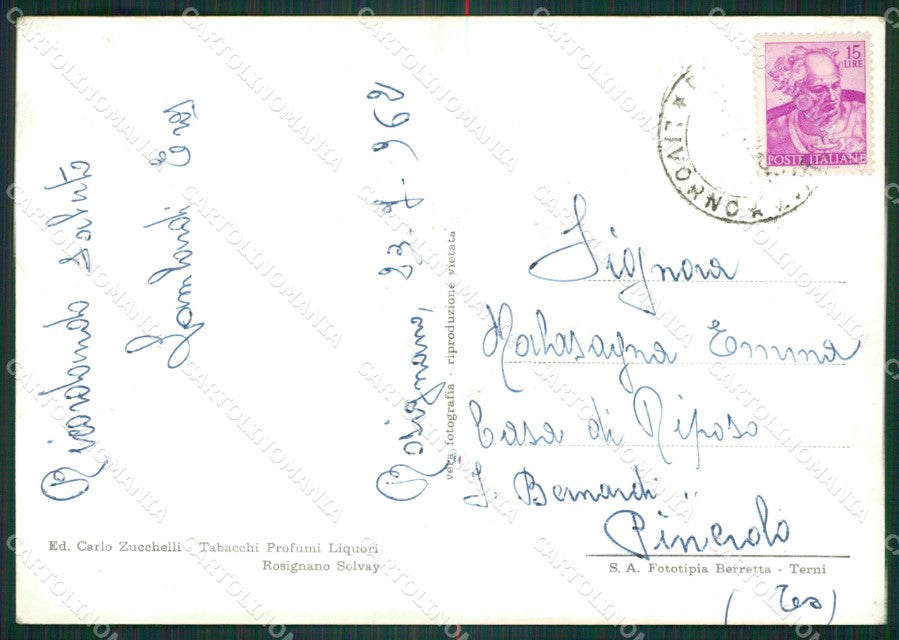 Rosignano, 23-7-962
Ricordando saluto
Lombardi Eros
vera fotografia - riproduzione vietata
Ed. Carlo Zucchelli - Tabacchi Profumi Liquori
Rosignano Solvay
15
LIRE
POSTE ITALIANE
LIVORNO
Signora
Malasagna Emma
Casa di Riposo
J. Bernardi
Pinerolo
S. A. Fototipia Berretta - Terni
(To)
CARTOLINOMANIA